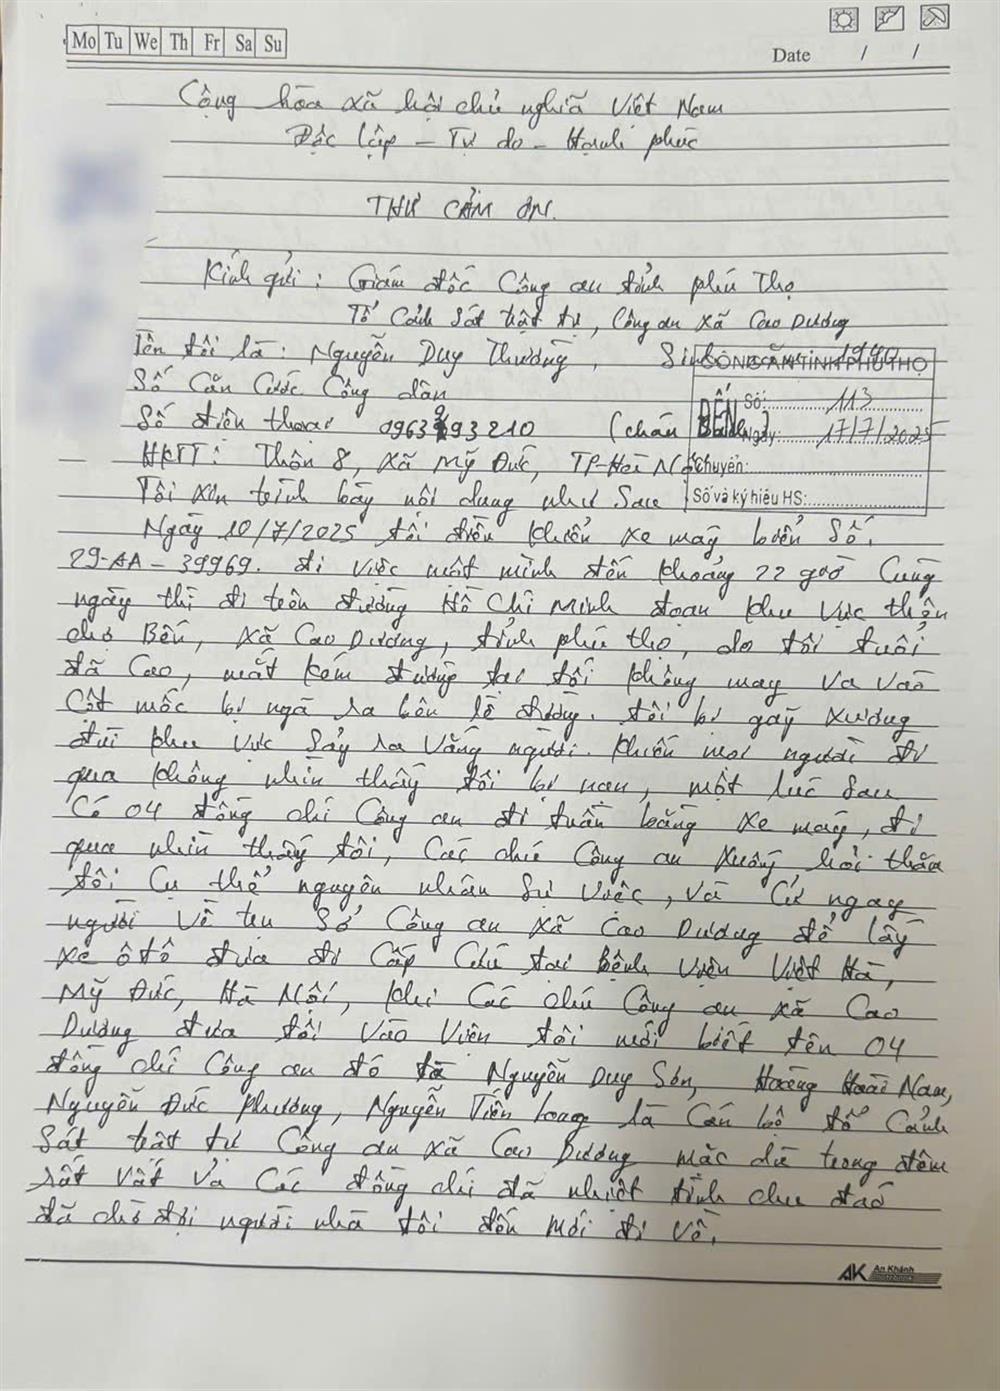 Mo Tu We Th Fr Sa Su
Date / /
Cộng hòa xã hội chủ nghĩa Việt Nam
Độc lập – Tự do – Hạnh phúc
THƯ CẢM ƠN.
Kính gửi: Giám đốc Công an tỉnh phú Thọ
Tổ Cảnh Sát trật tự, Công an xã Cao Dương
Tên tôi là: Nguyễn Duy Thường, Sinh
CÔNG AN TỈNH PHÚ THỌ
Số Căn Cước Công dân
ĐẾN Số: 113
Số điện thoại 0963 93210 (cháu
Ngày: 17/7/2025
HKTT: Thôn 8, xã Mỹ Đức, TP-Hà N
Chuyển:
Tôi xin trình bày nội dung như Sau
Số và ký hiệu HS:
Ngày 10/7/2025 tôi điều khiển xe máy biển Số.
29-AA – 39969. đi việc một mình đến khoảng 22 giờ Cùng
ngày thì đi trên đường Hồ Chí Minh đoạn khu vực thôn
chợ Bến, xã Cao Dương, tỉnh phú thọ, do tôi tuổi
đã Cao, mắt kém đường tại tối không may va vào
Cột mốc bị ngã ra bên lề đường. tôi bị gãy xương
đùi khu vực sảy ra vắng người. khiến mọi người đi
qua không nhìn thấy tôi bị nạn, một lúc sau
Có 04 đồng chí Công an đi tuần bằng xe máy, đi
qua nhìn thấy tôi, Các chú Công an xuống hỏi thăm
tôi Cụ thể nguyên nhân sự việc, và Cử ngay
người về trụ sở Công an xã Cao Dương để lấy
xe ôtô đưa đi Cấp Cứu tại Bệnh viện Việt Hà,
Mỹ Đức, Hà Nội, khi Các chú Công an xã Cao
Dương đưa tôi vào viện tôi mới biết tên 04
đồng chí Công an đó là Nguyễn Duy Sơn, Hoàng Hoài Nam,
Nguyễn Đức Phương, Nguyễn Tiến Long là Cán bộ tổ Cảnh
Sát trật tự Công an xã Cao Dương mặc dù trong đêm
rất vất vả Các đồng chí đã nhiệt tình chu đáo
đã chờ đợi người nhà tôi đến mới đi về.
AK An Khánh